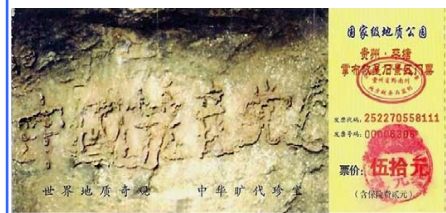 中国共产党亡
世界地质奇观 中华旷代珍宝
国家级地质公园
贵州·平塘
掌布藏字石景区门票
发票代码:252270558111
发票号码:00006206
票价:伍拾元
(含保险费贰元)